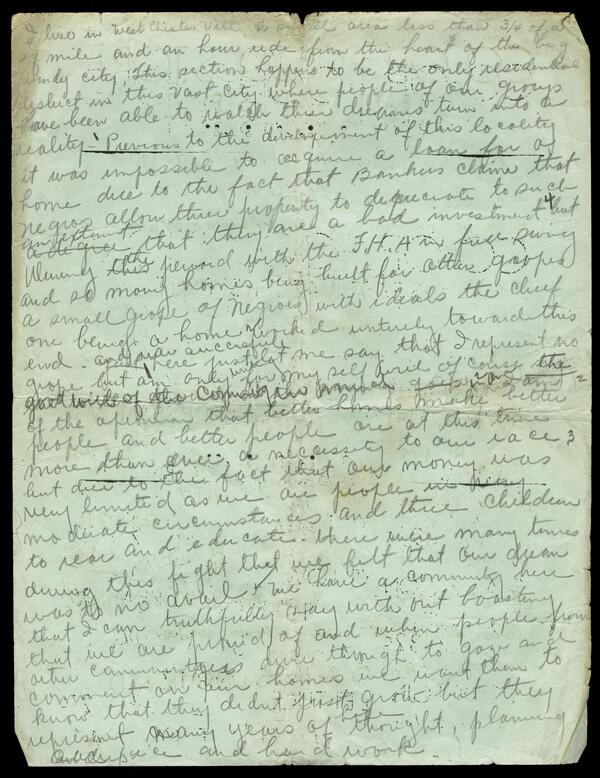 I live in West Chester Vill a small area less than 3/4 of a
mile and an hour ride from the heart of the big
windy city, This section happens to be the only residential
district in this vast city where people of our groups
have been able to watch their dreams turn into a
reality - Previous to the development of this locality
it was impossible to acquire a loan for a
home due to the fact that Bankers claim that
negros allow three property to depreciate to such
an extent
a degree that they are a bad investment but
During this the period with the F.H.A in full swing
and so many homes being built for other groopes
a small Grope of Negroes with ideals the chief
one being a home worked unturely toward this
end. and were successfule
right here just let me say that I represent no
grope but am only writing for my self and of course the
good will of the Community
of the openion that better homes make better
people and better people are at this time
more than ever, a necessity to our race,
but due to the fact that our money was
very limited as we are people in very
moderate circumstances and three children
to rear and educate. There were many times
during this fight that we felt that our dream
was to no avail. We have a community here
that I can truthfully say with out boasting
that we are proud of and when people from
other communities drive through to gaze and
comment on our homes we want them to
know that they didnt just grow but they
represent many years of thought, planning
and hard work.